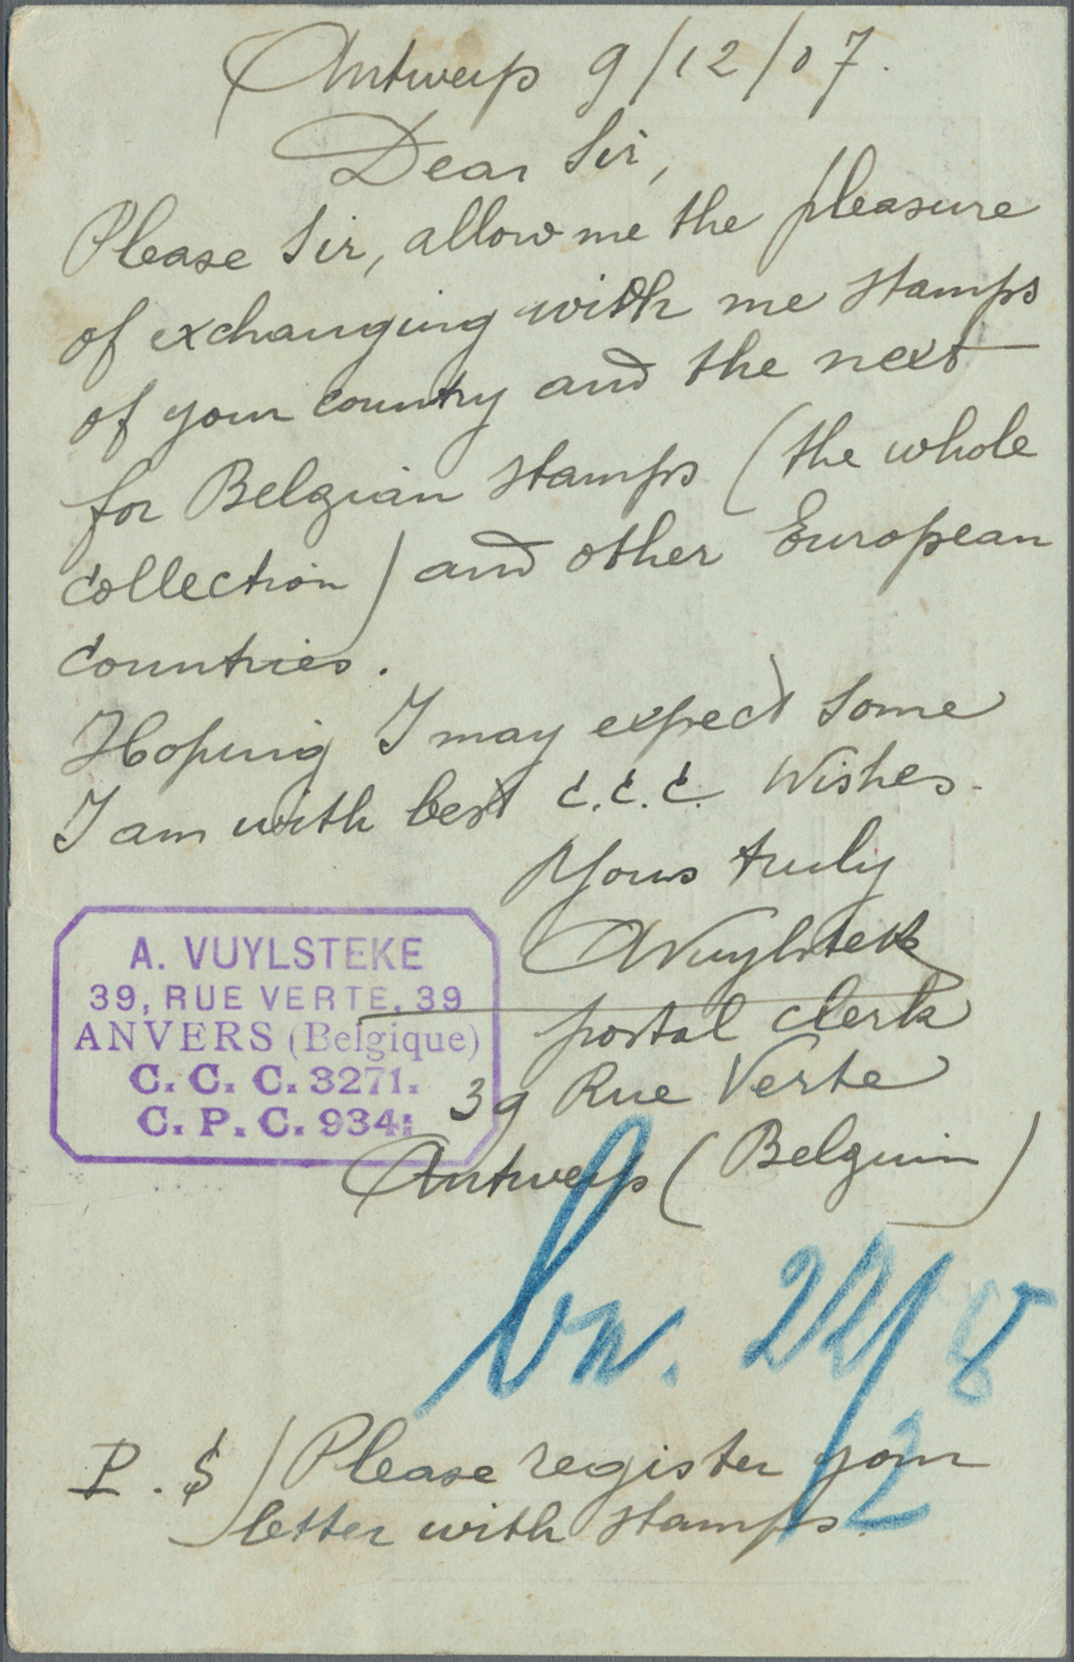 Antwerp 9/12/07.
Dear Sir,
Please Sir, allow me the pleasure
of exchanging with me stamps
of your country and the next
for Belgian stamps (the whole
collection) and other European
countries.
Hoping I may expect some
I am with best C.C.C. Wishes.
Yours truly
AVuylsteke
postal clerk
39 Rue Verte
Antwerp (Belguim)
A. VUYLSTEKE
39, RUE VERTE, 39
ANVERS (Belgique)
C. C. C. 3271.
C. P. C. 934:
22/12 8
P.S/ Please register your
letter with stamps.